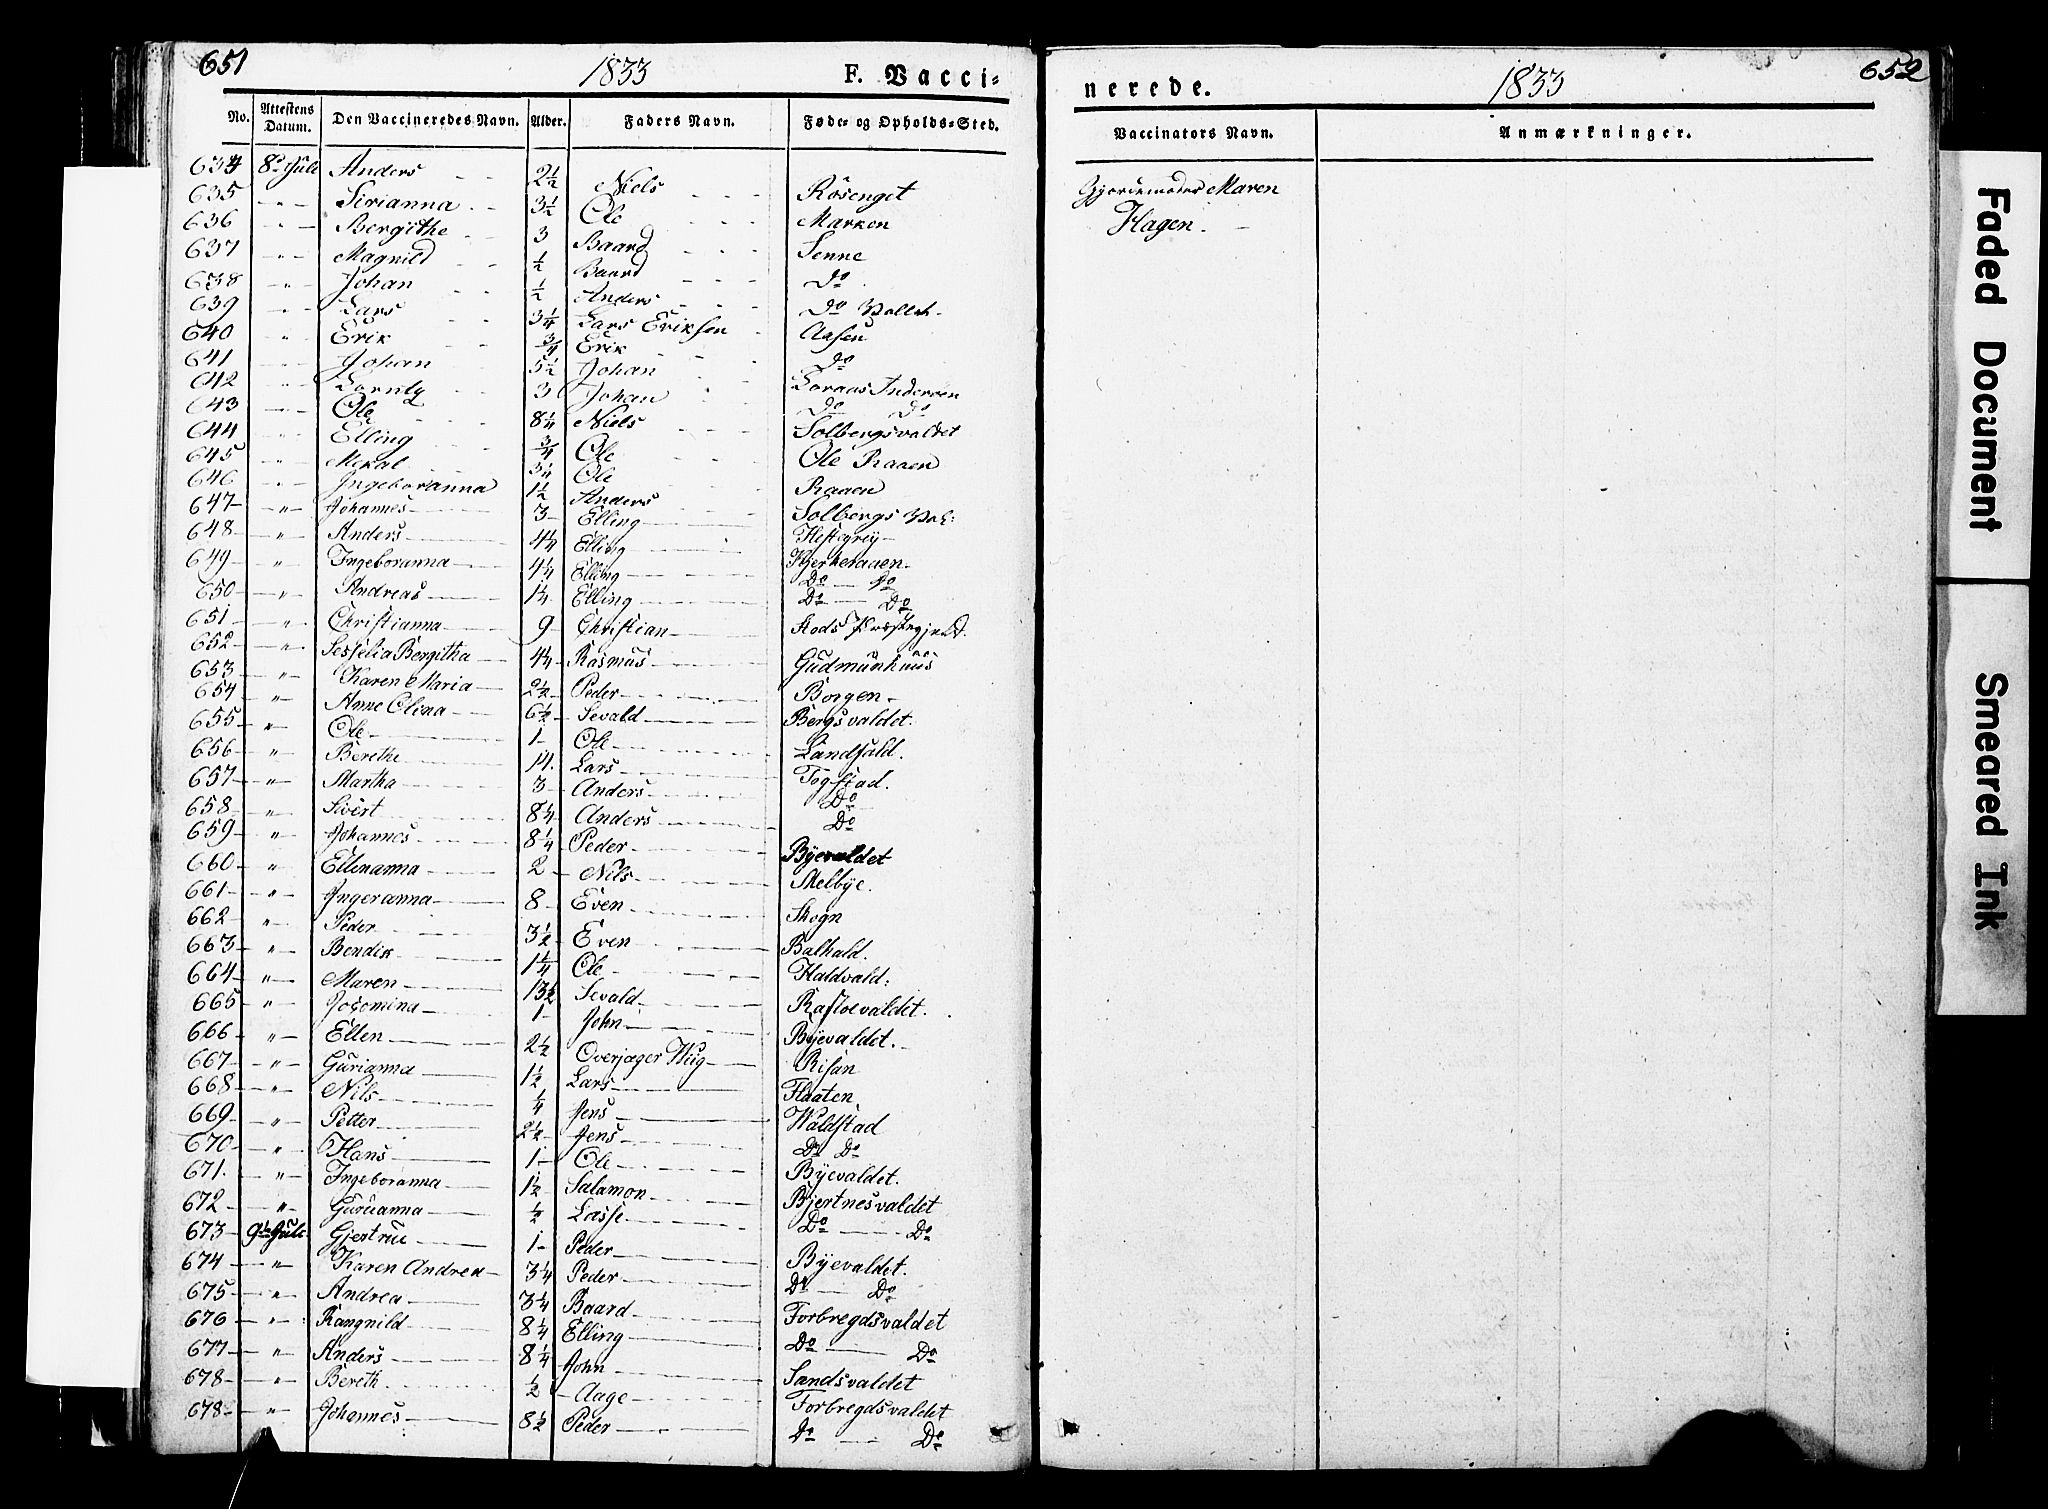 651
1833
F. Vacci=
No. Attestens Datum. Den Vaccineredes Navn. Alder. Faders Navn. Føde- og Opholds-Sted.
634 8de Juli Anders 2½ Niels Rosenget
635 " Sirianna 3½ Ole Marken
636 " Bergithe 3 Baard Senne
637 " Magnild ½ Baard Do
638 " Johan ½ Anders Do
639 " Lars 3¼ Lars Eriksen Aasen
640 " Erik ¾ Erik Do
641 " Johan 5½ Johan
642 " 3 Johan Do Do
643 " Ole 8¼ Niels Solbergsvaldet
644 " Elling ¾ Ole Ole Raaen
645 " Mekal 3¼ Ole Raaen
646 " Ingeboranna 1½ Anders Solbergs
647 " Johannes 3 Elling
648 " Anders 4¼ Elling
649 " Ingeboranna 4¼ Elling Do Do
650 " Andreas 1¼ Elling Do Do
651 " Christianna 9 Christian Stods Præstegjeld.
652 " Sesselia Bergitha 4¼ Rasmus Gudmunhuus
653 " Karen Maria 2½ Peder Borgen
654 " Anne Olina 6½ Sevald Bergsvaldet.
655 " Ole 1 Ole Landfald.
656 " Berethe 14 Lars Togstad.
657 " Martha 3 Anders Do
658 " Sivert 8¼ Anders Do
659 " Johannes 8¼ Peder Byevaldet
660 " Ellinanna 2 Nils Melbye.
661 " Ingeranna 8 Even Skogn
662 " Peder 3½ Even Balhald.
663 " Bendik 1¼ Ole Haldvald:
664 " Maren 13½ Sevald
665 " Josomina 1 John Byevaldet.
666 " Ellen 2½ Overjæger Wiig Risan
667 " Gurianna 1½ Lars Flaaten
668 " Nils ¼ Jens Waldstad
669 " Petter 2½ Jens Do Do
670 " Hans 1 Ole Byevaldet.
671. " Ingeboranna 1½ Salamon Bjertnesvaldet
672 " Guruanna ½ Lasse Do Do
673 9de Juli Gjertrue 1 Peder Byevaldet.
674 " Karen Andrea 3¼ Peder Do Do
675 " Andrea 3¼ Baard Forbregdsvaldet
676 " Rangnild 8¼ Elling Do Do
677 " Anders 8¼ John Sandsvaldet
678 " Bereth ½ Aage Forbregdsvaldet
678 " Johannes 8½ Peder Do Do
nerede.
1833
652
Vaccinators Navn. Anmærkninger.
Gjordemoder Maren
Hagen.
Faded Document
Smeared Ink